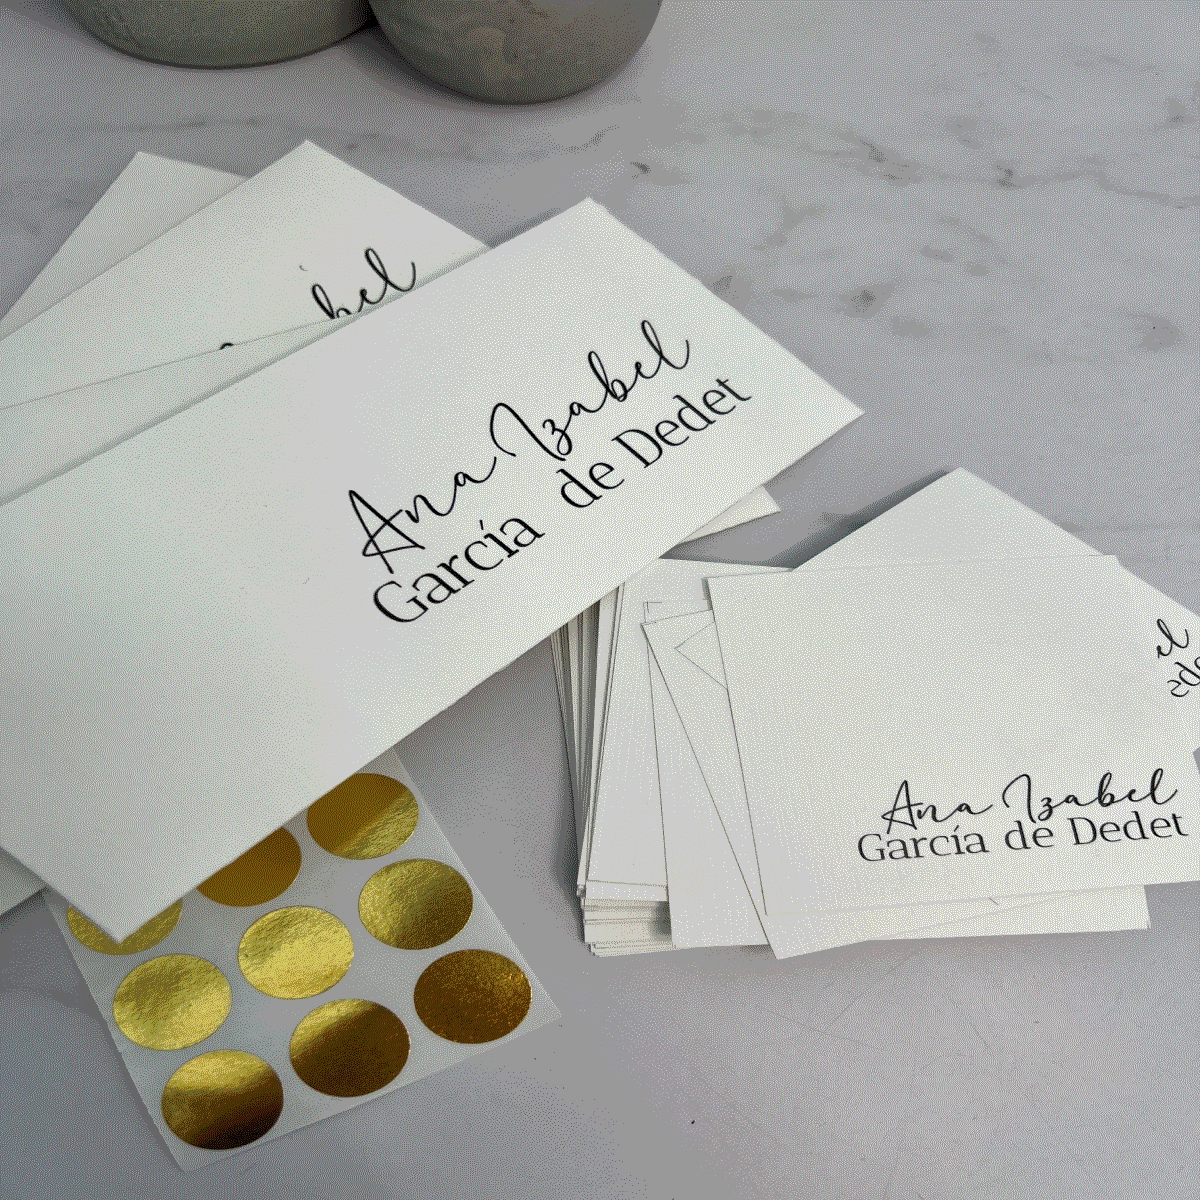 bel
Ana Izabel
García de Dedet
el
Ana Izabel
García de Dedet